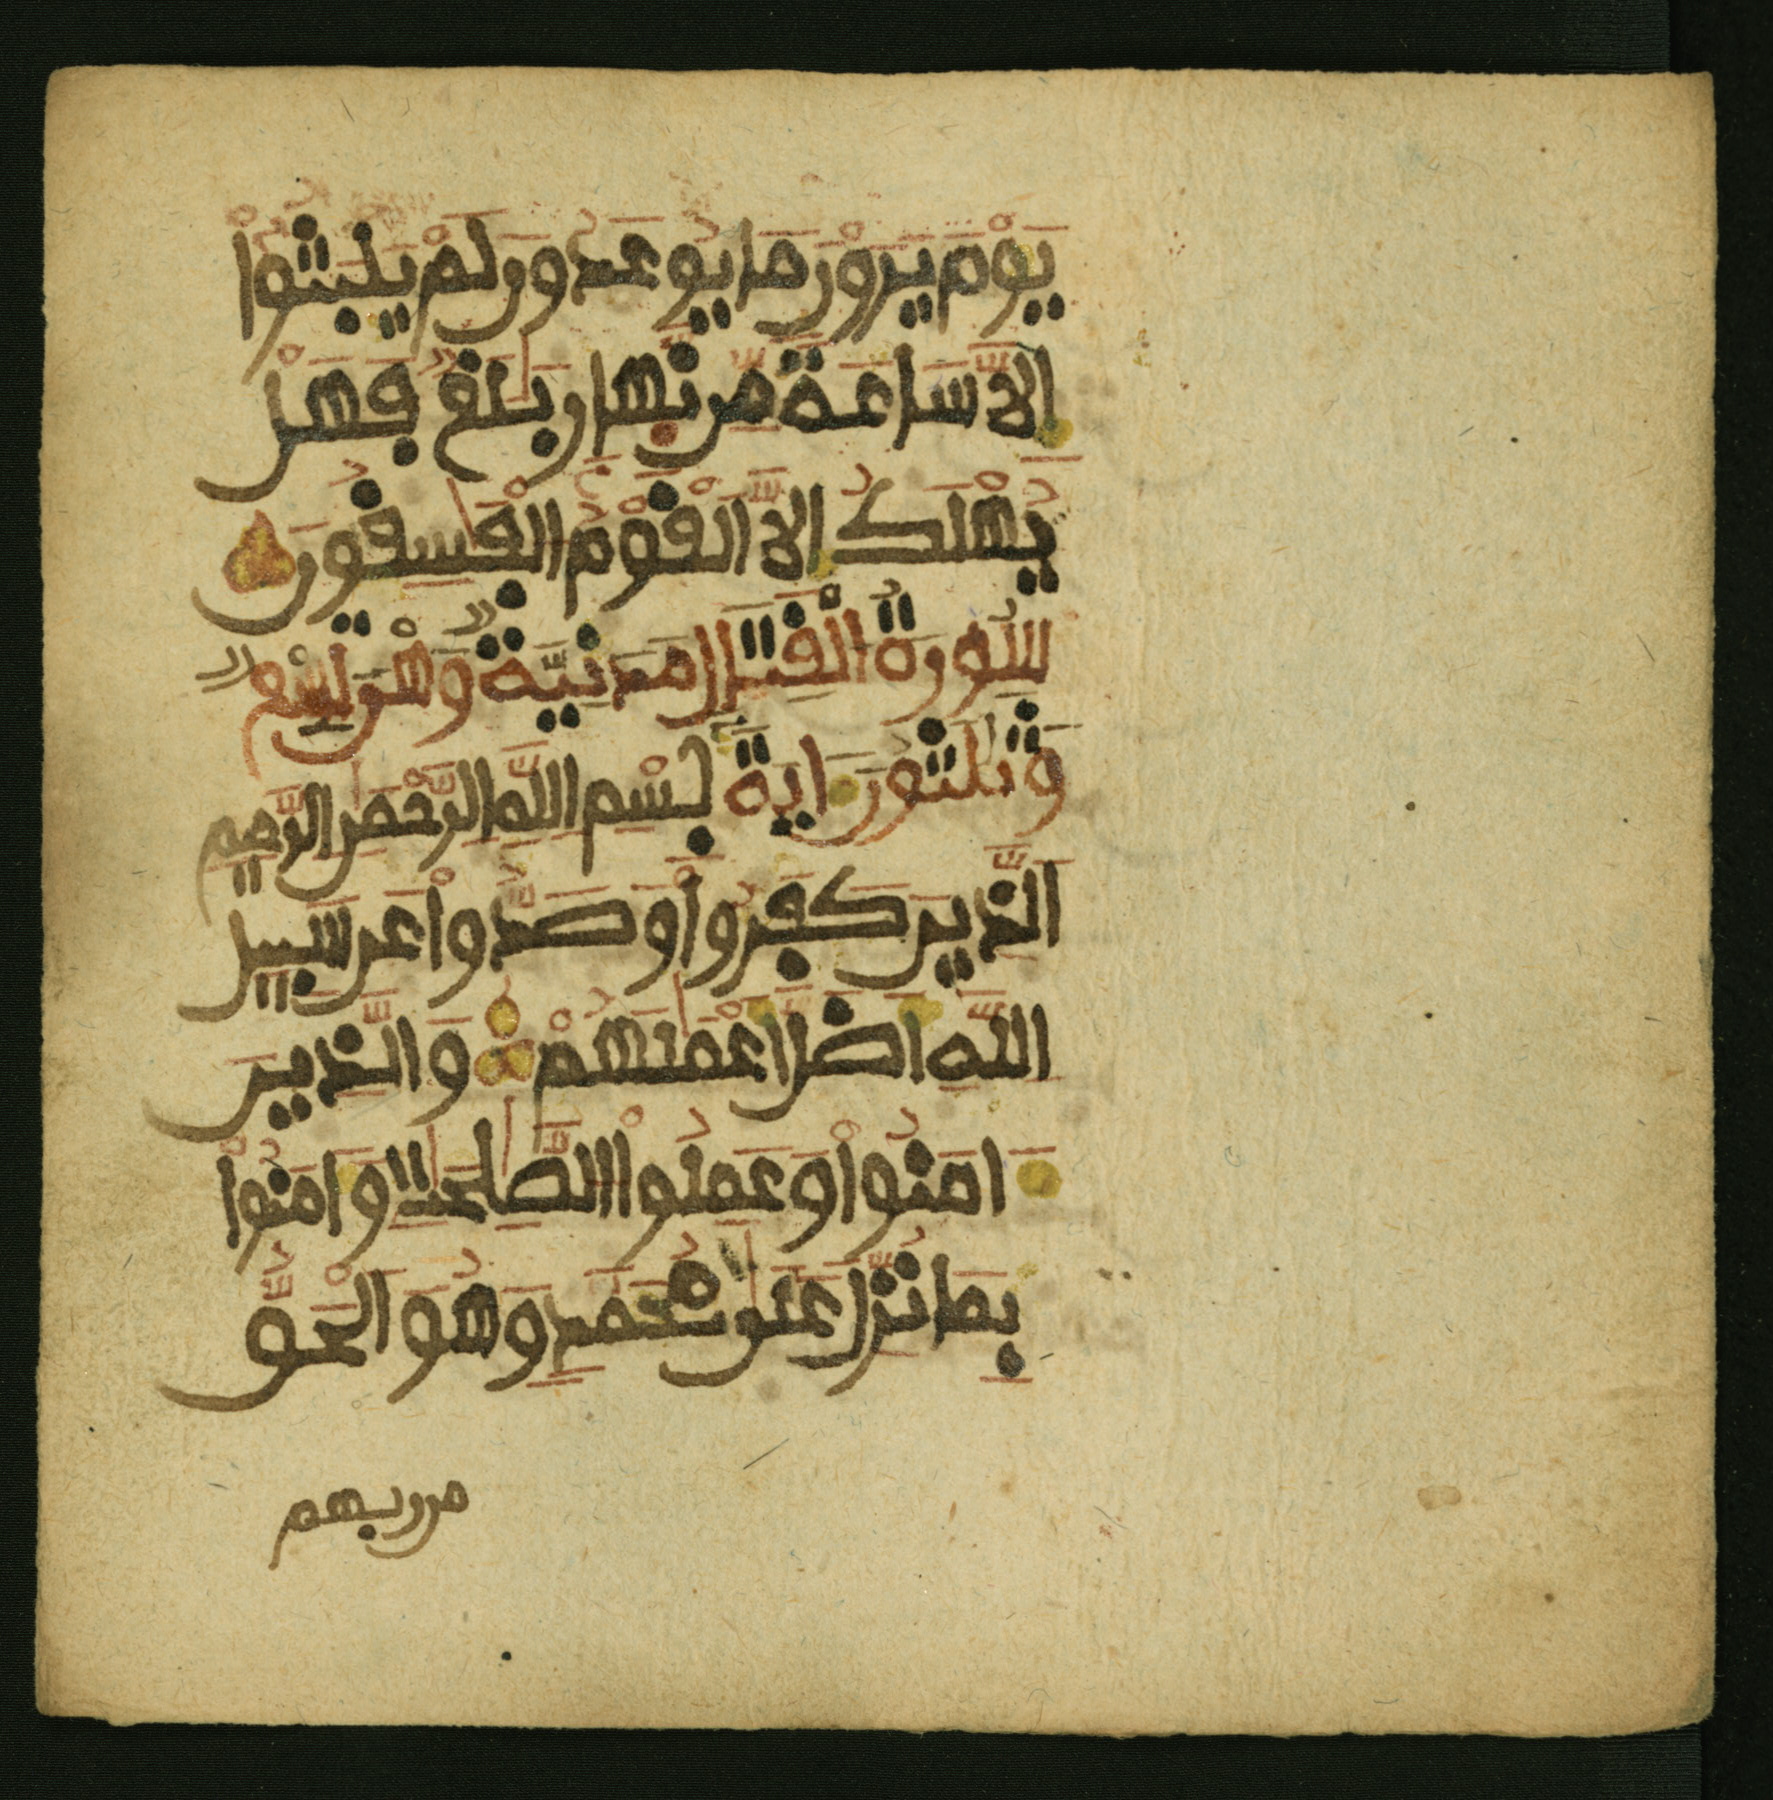 يَوْمَ يَرَوْنَ مَا يُوعَدُونَ لَمْ يَلْبَثُوٓاْ
إِلَّا سَاعَةً مِّن نَّهارٍ بَلَٰغٌ فَهَلْ
يُهْلَكُ إِلَّا ٱلْقَوْمُ ٱلْفَٰسِقُونَ
سُورَةُ ٱلْقِتَالِ مَدَنِيَّةٌ وَهْىَ تِسْعٌ
وَثَلَٰثُونَ ءَايَةً بِسْمِ ٱللَّهِ ٱلرَّحْمَٰنِ ٱلرَّحِيمِ
ٱلَّذِينَ كَفَرُواْ وَصَدُّواْ عَن سَبِيلِ
ٱللَّهِ أَضَلَّ أَعْمَٰلَهُمْ وَٱلَّذِينَ
ءَامَنُواْ وَعَمِلُواْ ٱلصَّٰلِحَٰتِ وَءَامَنُواْ
بِمَا نُزِّلَ عَلَىٰ مُحَمَّدٍ وَهُوَ ٱلْحَقُّ
من ربهم